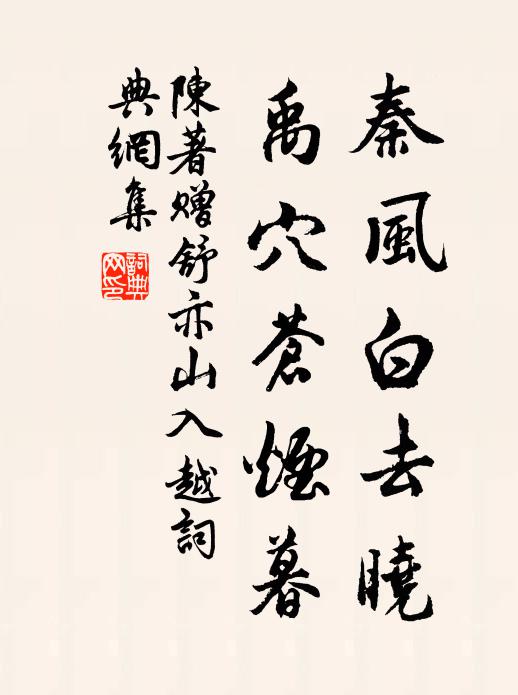 秦風白去曉
禹穴蒼煙暮
陳著贈舒亦山入越詞
典網集
詞典网印